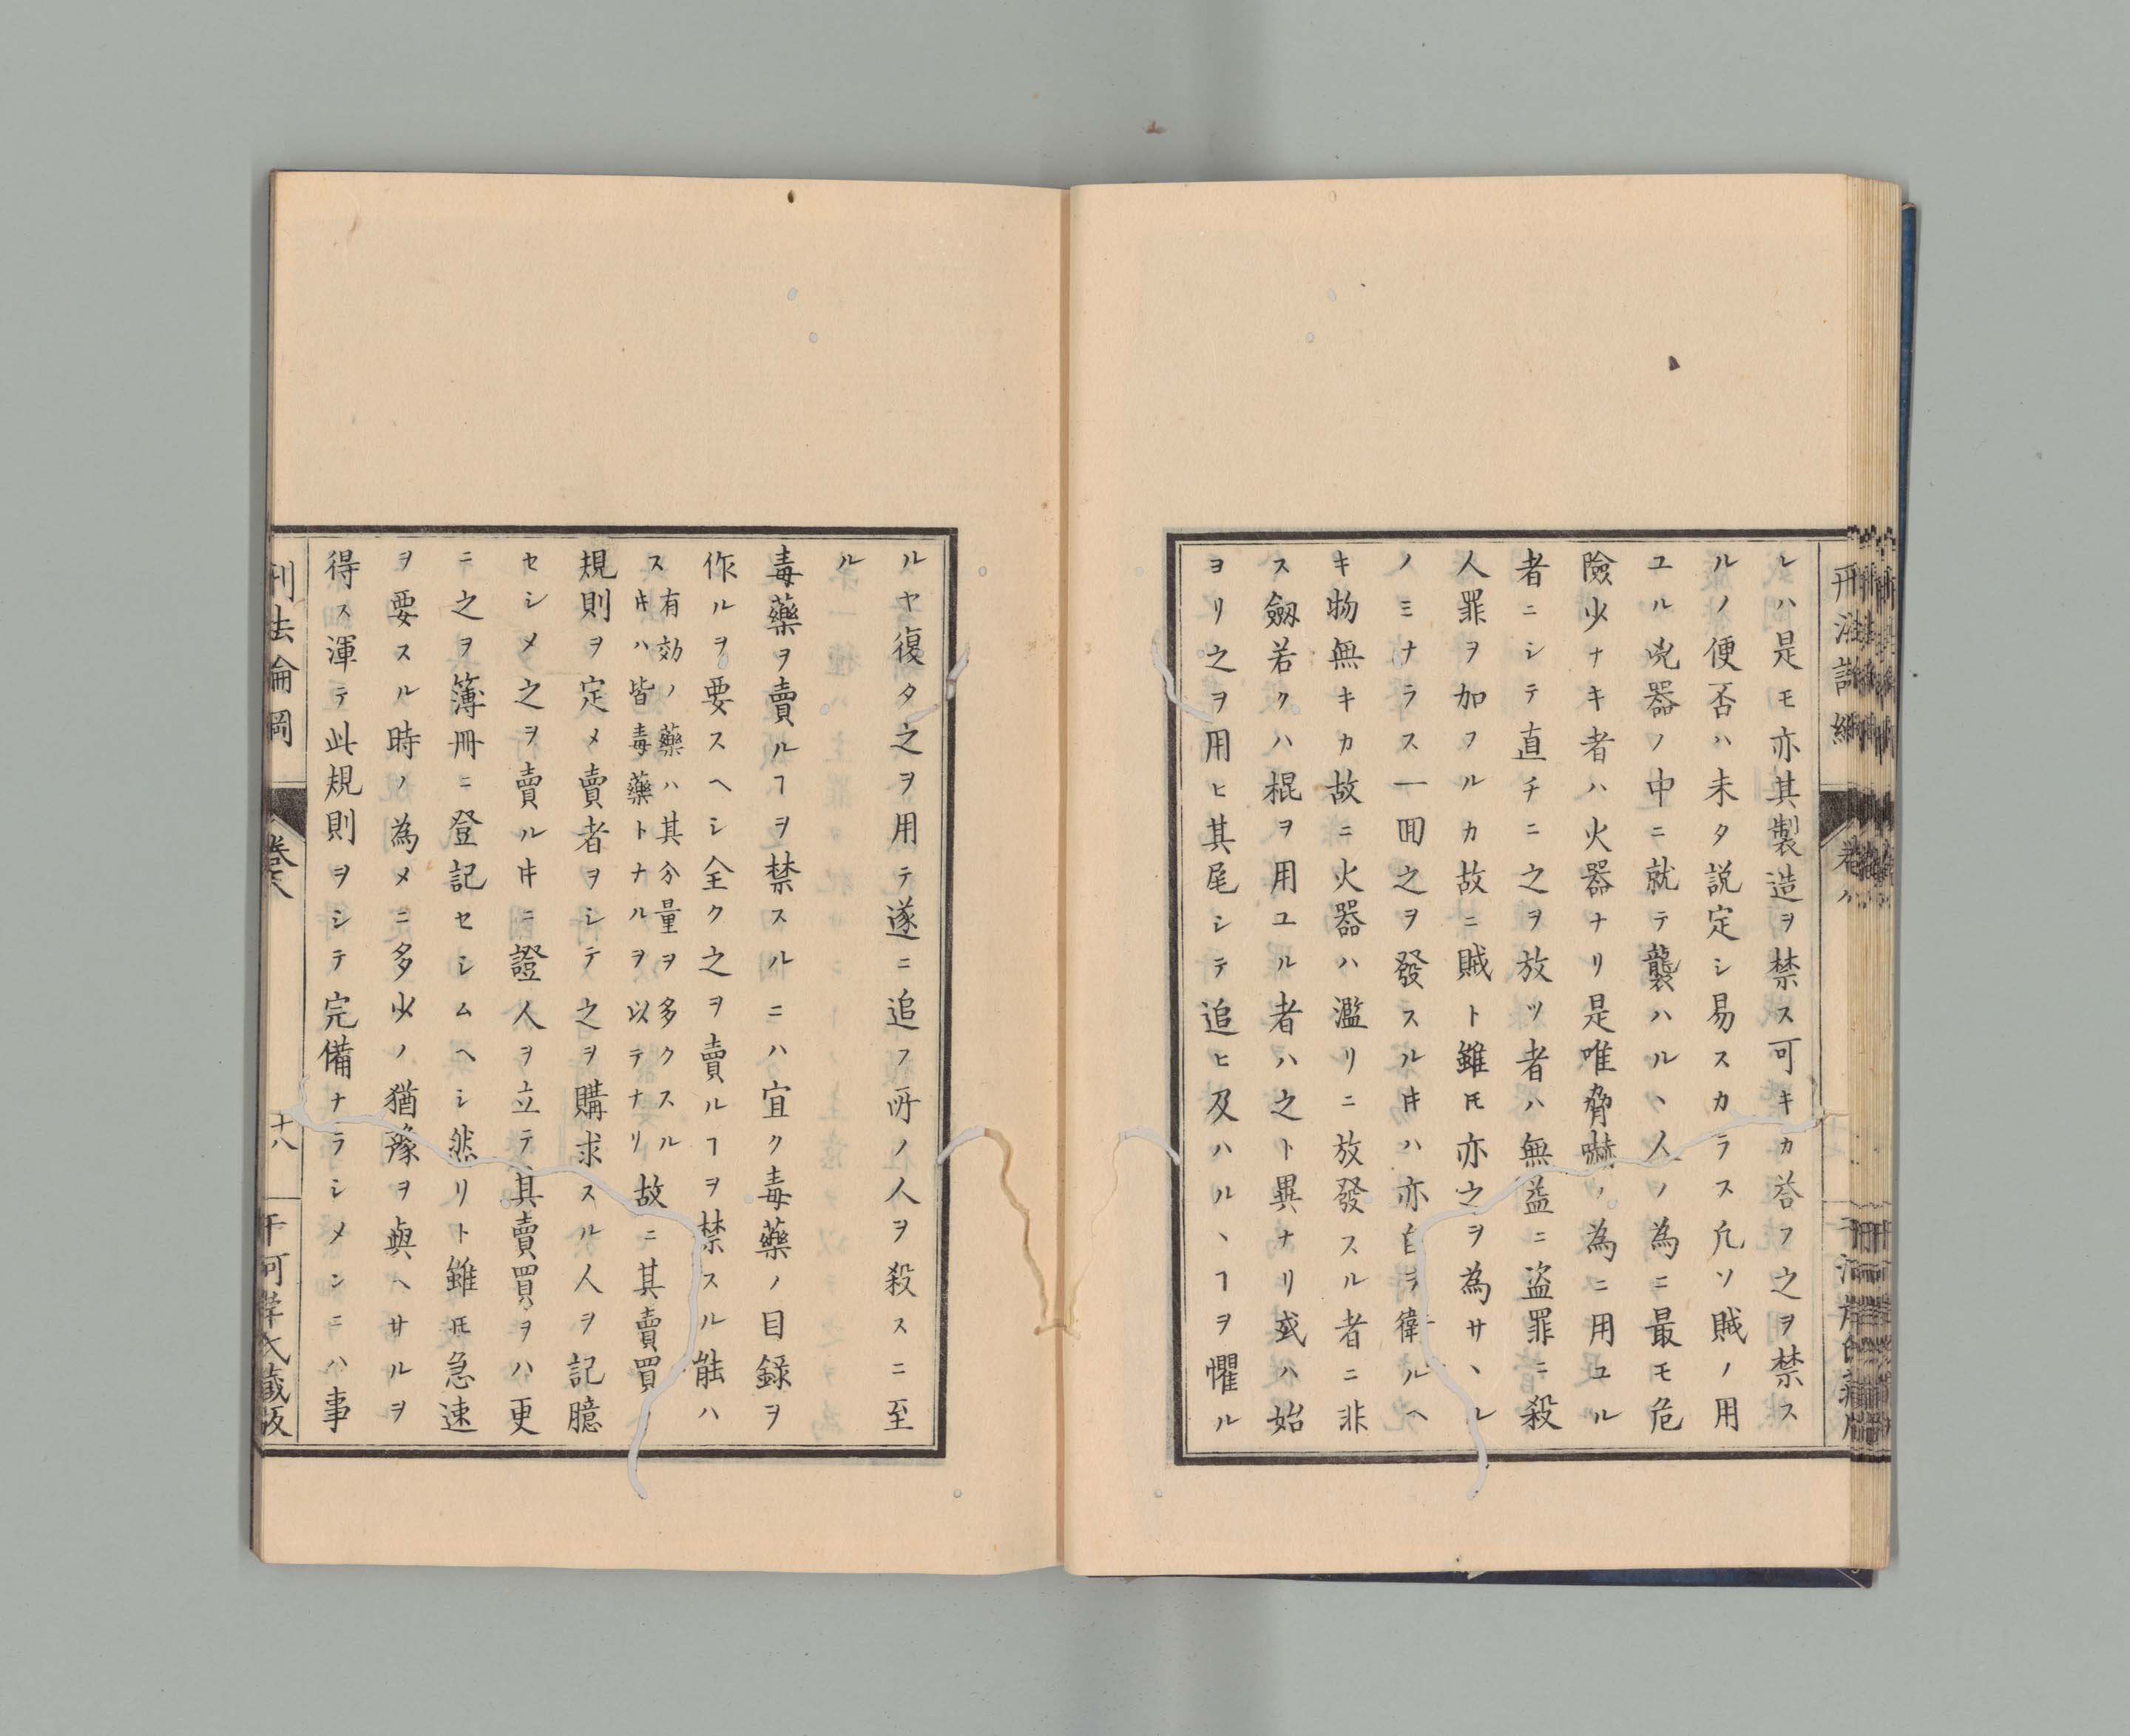 レハ是モ亦其製造ヲ禁ス可キカ荅フ之ヲ禁ス
ルノ便否ハ未タ説定シ易スカラス凡ソ賊ノ用
ユル兇器ノ中ニ就テ襲ハルヽ人ノ為ニ最モ危
險少ナキ者ハ火器ナリ是唯脅嚇ノ為ニ用ユル
者ニシテ直チニ之ヲ放ツ者ハ無益ニ盗罪ニ殺
人罪ヲ加フルカ故ニ賊ト雖𪜈亦之ヲ為サヽル
ノミナラス一囬之ヲ發スル𪜀ハ亦自ラ衛ルヘ
キ物無キカ故ニ火器ハ濫リニ放發スル者ニ非
ス劔若クハ棍ヲ用ユル者ハ之ト異ナリ或ハ始
ヨリ之ヲ用ヒ其尾シテ追ヒ及ハルヽヿヲ懼ル
ルヤ復タ之ヲ用テ遂ニ追フ所ノ人ヲ殺スニ至
ル
毒藥ヲ賣ルヿヲ禁スルニハ宜ク毒藥ノ目録ヲ
作ルヲ要スヘシ全ク之ヲ賣ルヿヲ禁スル能ハ
ス有効ノ藥ハ其分量ヲ多クスル𪜀ハ皆毒藥トナルヲ以テナリ故ニ其賣買ノ
規則ヲ定メ賣者ヲシテ之ヲ購求スル人ヲ記臆
セシメ之ヲ賣ル𪜀ニ證人ヲ立テ其賣買ヲハ更
ニ之ヲ簿冊ニ登記セシムヘシ然リト雖𪜈急速
ヲ要スル時ノ為メニ多少ノ猶豫ヲ與ヘサルヲ
得ス渾テ此規則ヲシテ完備ナラシメンニハ事
刑法論綱
卷六
十八